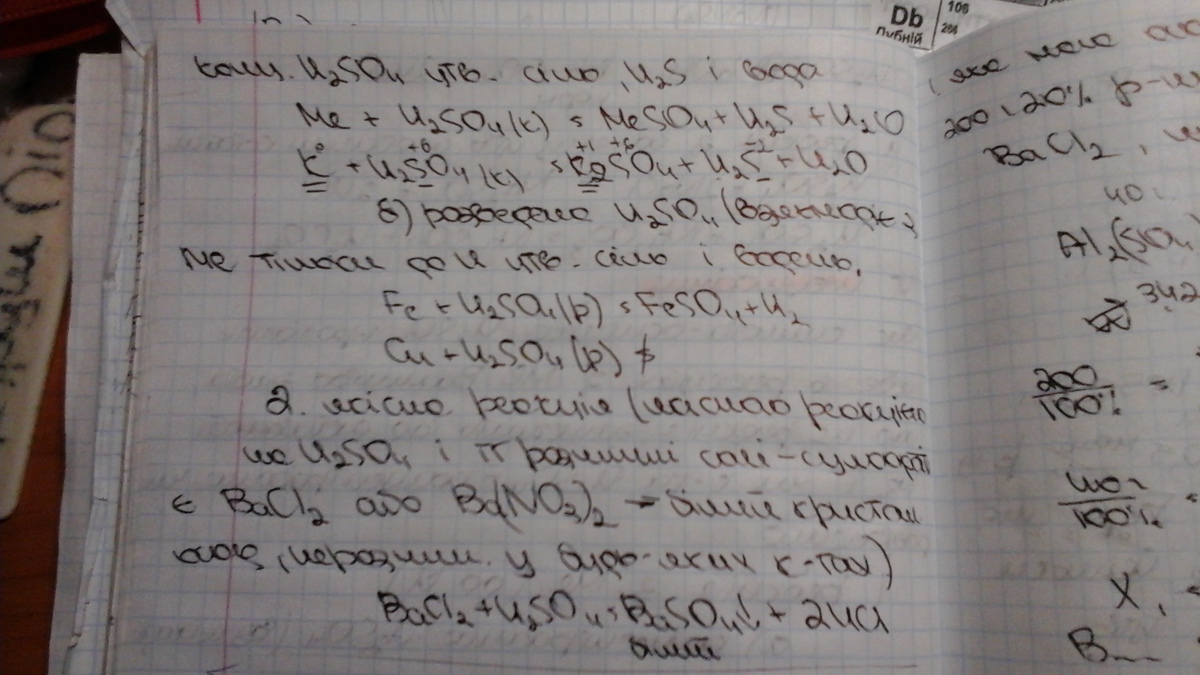 Db
Дубній
105
конц. H₂SO₄ утв. сіль, H₂S і вода
Me + H₂SO₄(к) = MeSO₄ + H₂S + H₂O
K⁰ + H₂S⁺⁶O₄(к) = K₂⁺¹S⁺⁶O₄ + H₂S⁻² + H₂O
б) розведена H₂SO₄ (взаємодіє з
Ме тільки до H утв. сіль і водень,
Fe + H₂SO₄(р) = FeSO₄ + H₂
Cu + H₂SO₄(р) ≠
2. якісна реакція (якісною реакцією
на H₂SO₄ і її розчинні солі - сульфати
є BaCl₂ або Ba(NO₃)₂ - білий кристал
осад, нерозчин. у будь-яких к-тах)
BaCl₂ + H₂SO₄ = BaSO₄↓ + 2HCl
білий
яка мала
200 г 20% р-н
BaCl₂,
40
Al₂(SO₄
342
200
100% =
40г
100%
X
B